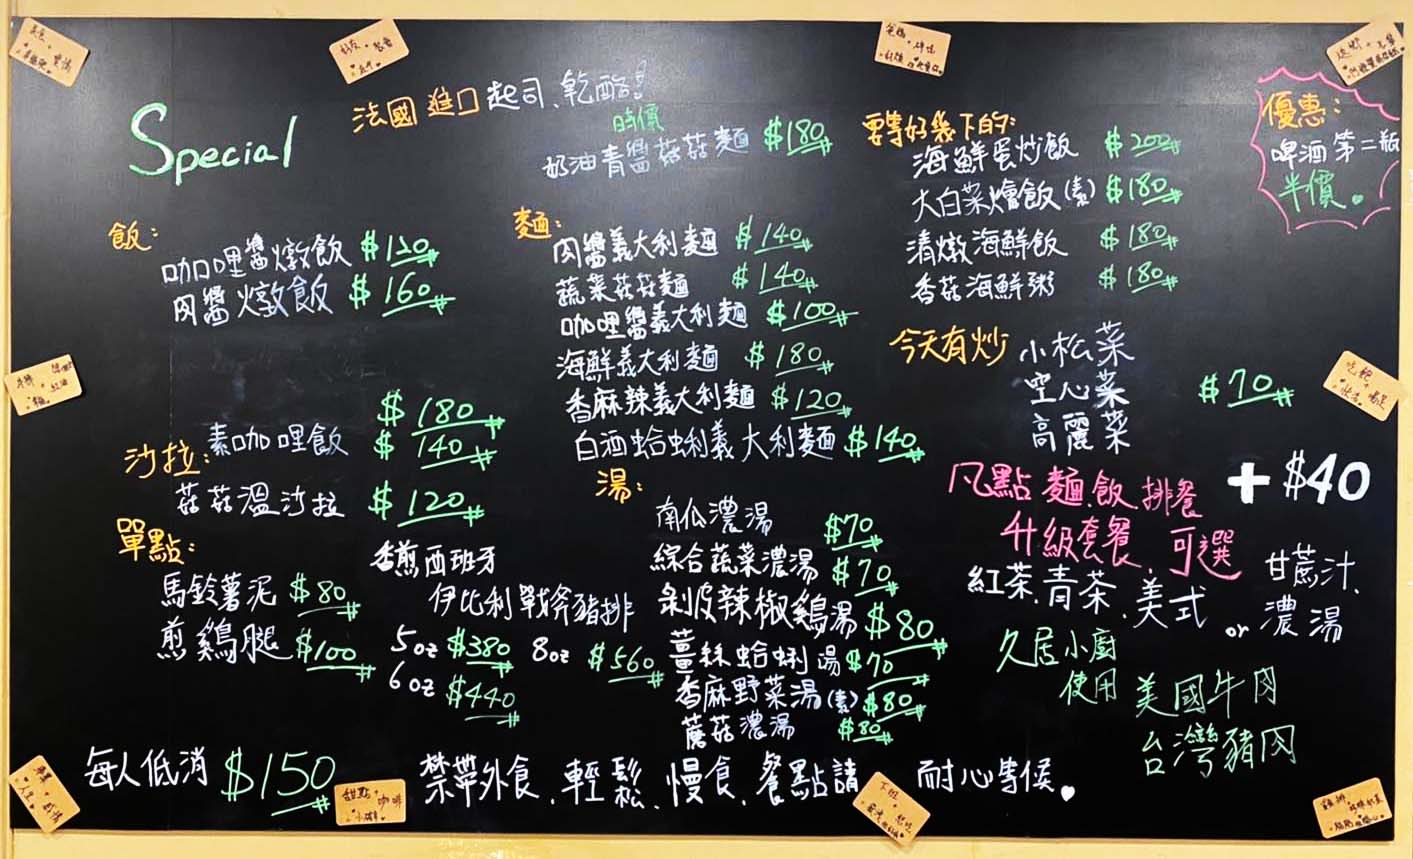 Special
法國進口起司、乾酪!
時價
奶油青醬菇菇麵 $180
飯:
咖哩醬燉飯 $120
肉醬燉飯 $160
$180
素咖哩飯 $140
沙拉:
菇菇溫沙拉 $120
單點:
馬鈴薯泥 $80
煎雞腿 $100
香煎西班牙
伊比利戰斧豬排
5oz $380 8oz $560
6oz $440
麵:
肉醬義大利麵 $140
蔬菜菇菇麵 $140
咖哩醬義大利麵 $100
海鮮義大利麵 $180
香麻辣義大利麵 $120
白酒蛤蜊義大利麵 $140
湯:
南瓜濃湯 $70
綜合蔬菜濃湯 $70
剝皮辣椒鷄湯 $80
薑絲蛤蜊湯 $70
香麻野菜湯(素) $80
蘑菇濃湯 $80
要等好幾下的:
海鮮蛋炒飯 $200
大白菜燴飯(素) $180
清燉海鮮飯 $180
香菇海鮮粥 $180
今天有炒
小松菜
空心菜 $70
高麗菜
凡點麵、飯、排餐 + $40
升級套餐、可選
紅茶、青茶、美式 or 甘蔗汁、
濃湯
久居小廚
使用 美國牛肉
台灣豬肉
優惠:
啤酒第二瓶
半價。
每人低消 $150
禁帶外食、輕鬆、慢食、餐點請 耐心等候。
甜點 咖啡